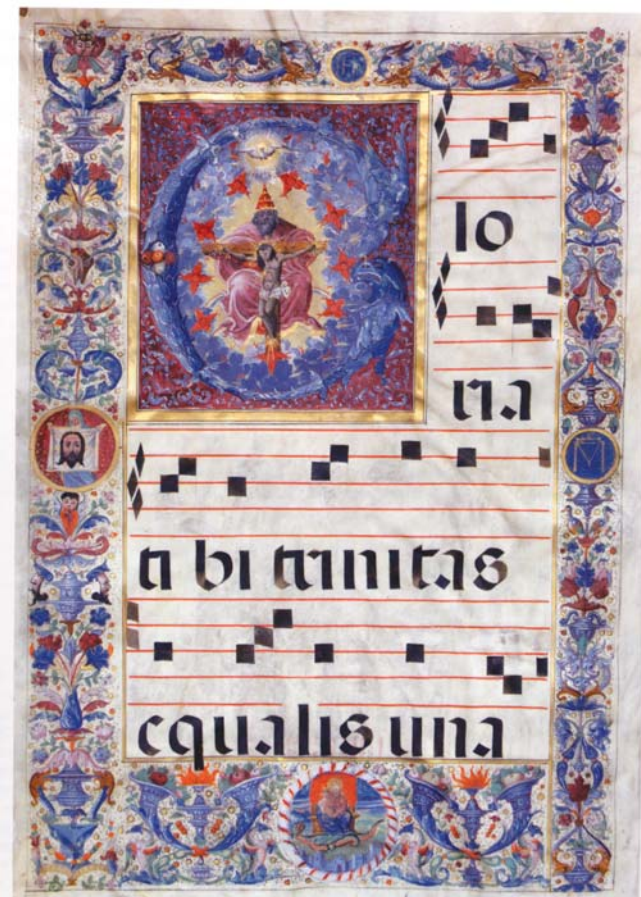 G
lo
ria
ti bi trinitas
equalis una
M